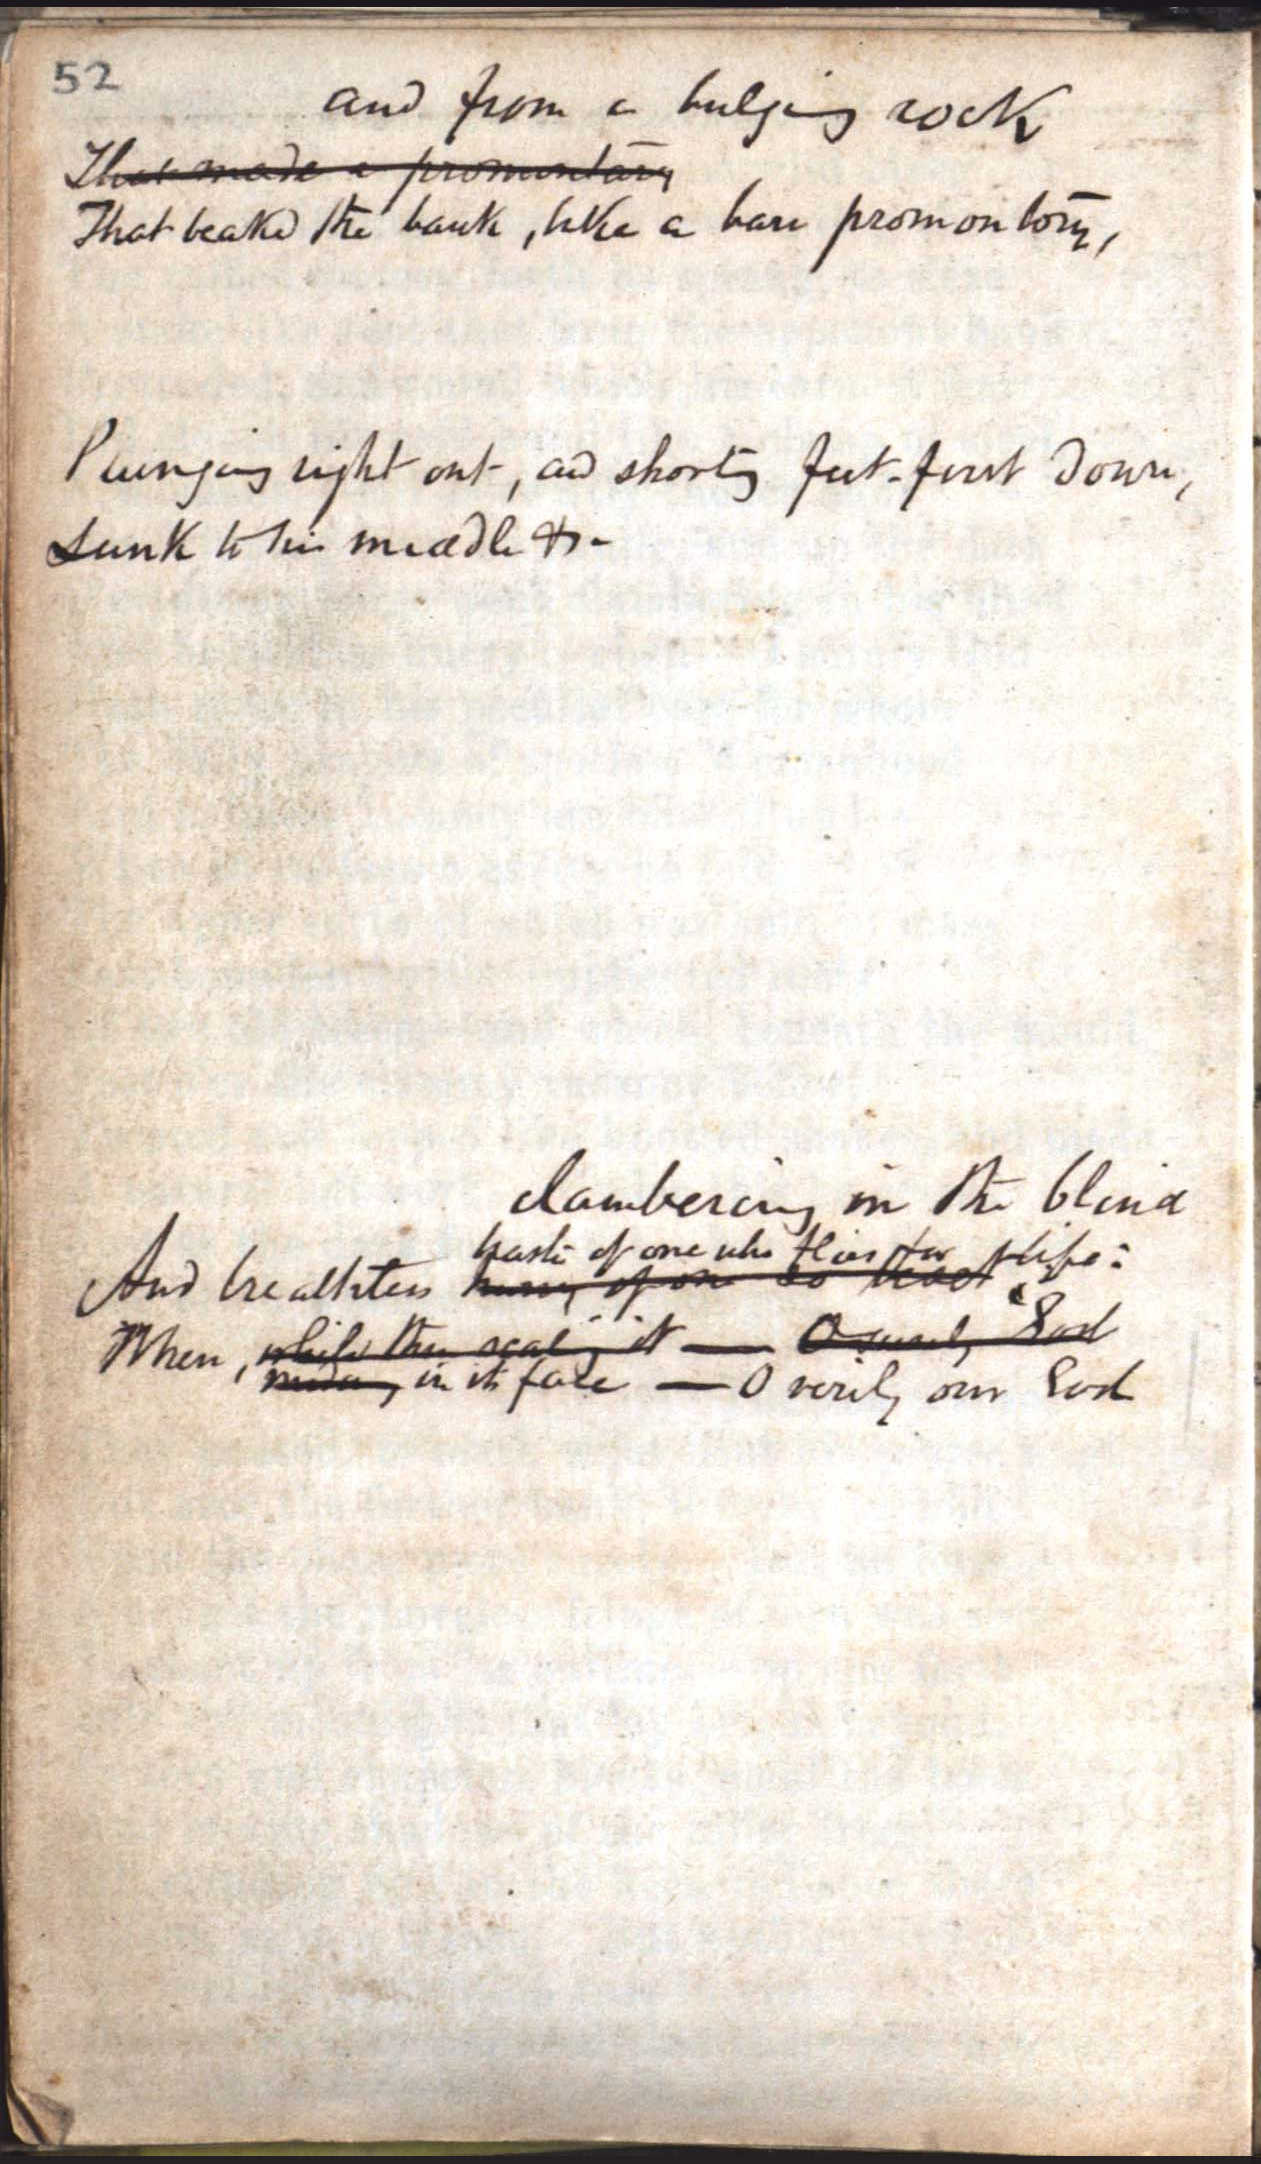 52
and from a bulging rock
That made a promontory
That beaked the bank, like a bare promontory,
Plunging right out, and shortly feet-first down,
Sunk to his middle &c-
clambering in the blind
haste of one who flies for life:
And breathless hurry of one so
When, while thus scaling it — O surely God
in its face — O verily our God